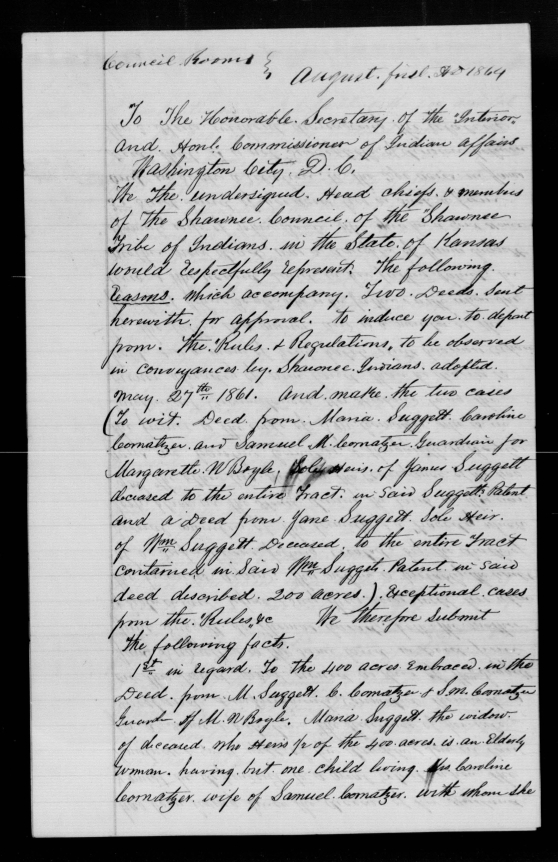 Council Rooms }
August. first. AD 1864
To The Honorable. Secretary. of the Interior
and. Honl. Commissioner of Indian affairs
Washington City. D. C.
We The. undersigned. Head chiefs. & members
of The Shawnee. Council. of the Shawnee
Tribe of Indians. in the State. of Kansas
would Respectfully represent. The following.
Reasons. which accompany. Two. Deeds. sent
herewith. for approval. to induce you. to. depart
from. The. Rules. & Regulations. to be observed
in conveyances by. Shawnee. Indians. adopted.
May. 27th 1861. And. make. the two cases
(To wit. Deed. from. Maria. Suggett. Caroline
Cornatzer. and Samuel M. Cornatzer. Guardian for
Margarette. N Boyle. Sole Heirs. of James Suggett
deceased to the entire Tract. in Said Suggetts Patent
and a Deed from Jane Suggett. Sole Heir.
of Wm Suggett. Deceased. to the entire Tract
contained in. Said Wm Suggets. Patent. in Said
deed described. 200 acres.) Exceptional. cases
from the. Rules, &c We therefore Submit
The following facts.
1st in regard. To the 400 acres. Embraced. in the
Deed. from M. Suggett. C. Cornatzer & S. M. Cornatzer
Guard of M. N Boyle. Maria. Suggett. the widow.
of deceased. who Heirs ½ of the 400 acres. is an Elderly
woman. having. but. one. child living. Mrs Caroline
Cornatzer. wife of Samuel. Cornatzer. with whom she